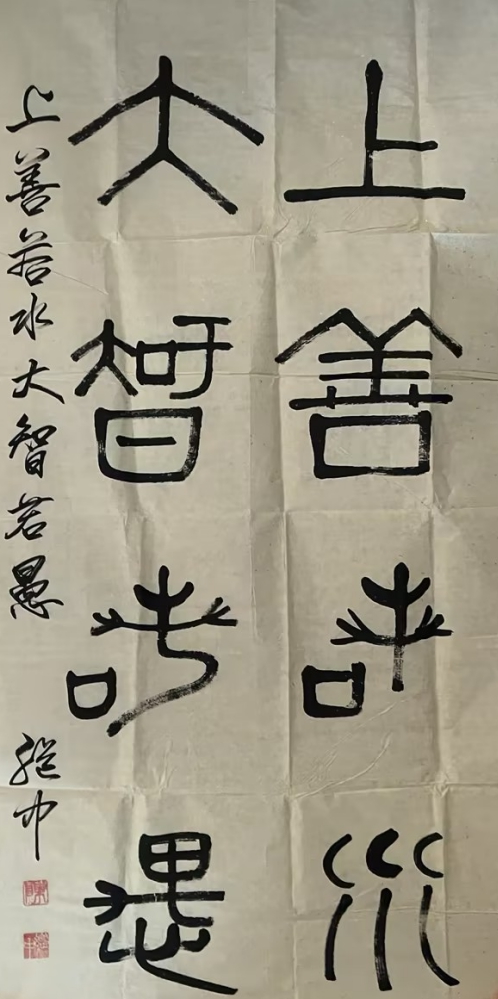 上善若水
大智若愚
上善若水大智若愚
继中